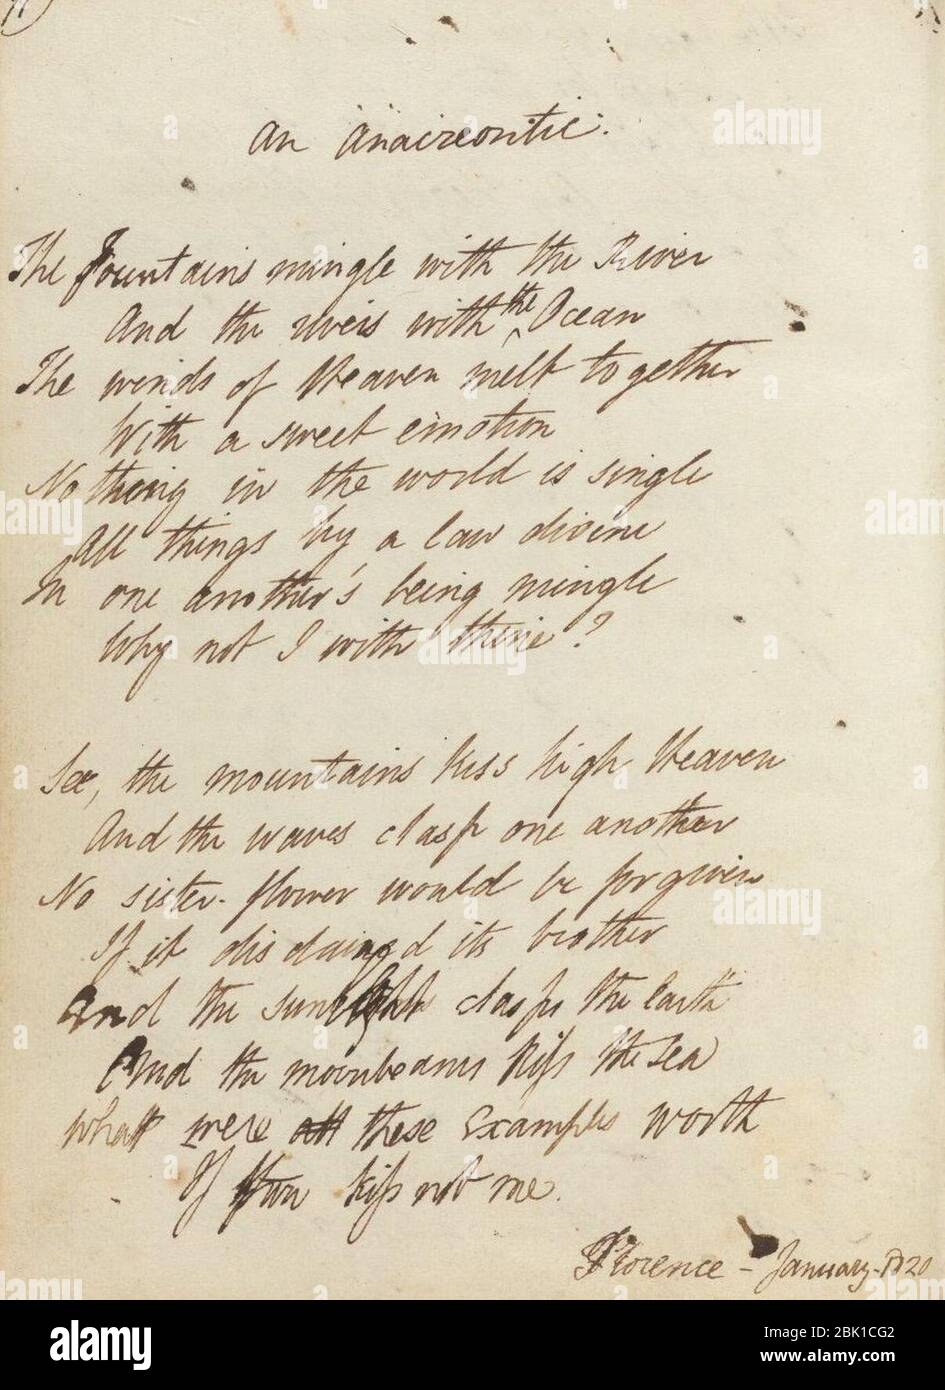 An Anacreontic.
The Fountains mingle with the River
And the rivers with the Ocean
The winds of Heaven melt together
With a sweet emotion
Nothing in the world is single
All things by a law divine
In one another's being mingle
Why not I with thine?
See, the mountains kiss high Heaven
And the waves clasp one another
No sister-flower would be forgiven
If it disdained its brother
And the sunlight clasps the Earth
And the moonbeams kiss the sea
What were all these examples worth
If thou kiss not me.
Florence - January - 1820
alamy
alamy
alamy
alamy
alamy
alamy
alamy
a
a
a
a
a
a
alamy
Image ID: 2BK1CG2
www.alamy.com